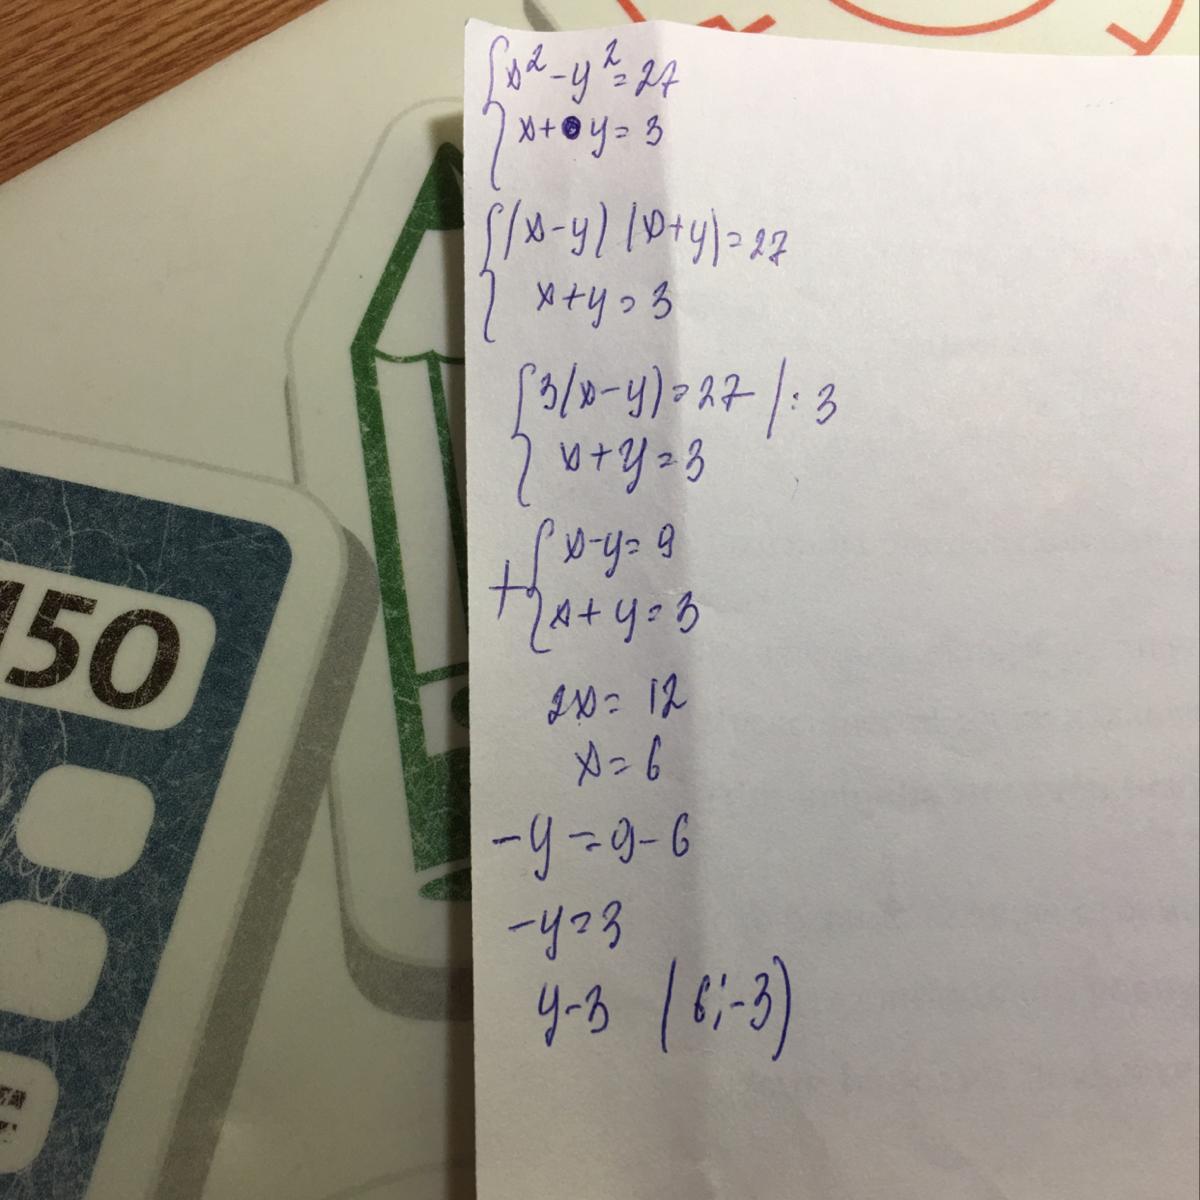 x²-y²=27
x+y=3
(x-y)(x+y)=27
x+y=3
3(x-y)=27 |:3
x+y=3
+ x-y=9
x+y=3
2x=12
x=6
-y=9-6
-y=3
y-3 (6;-3)
150